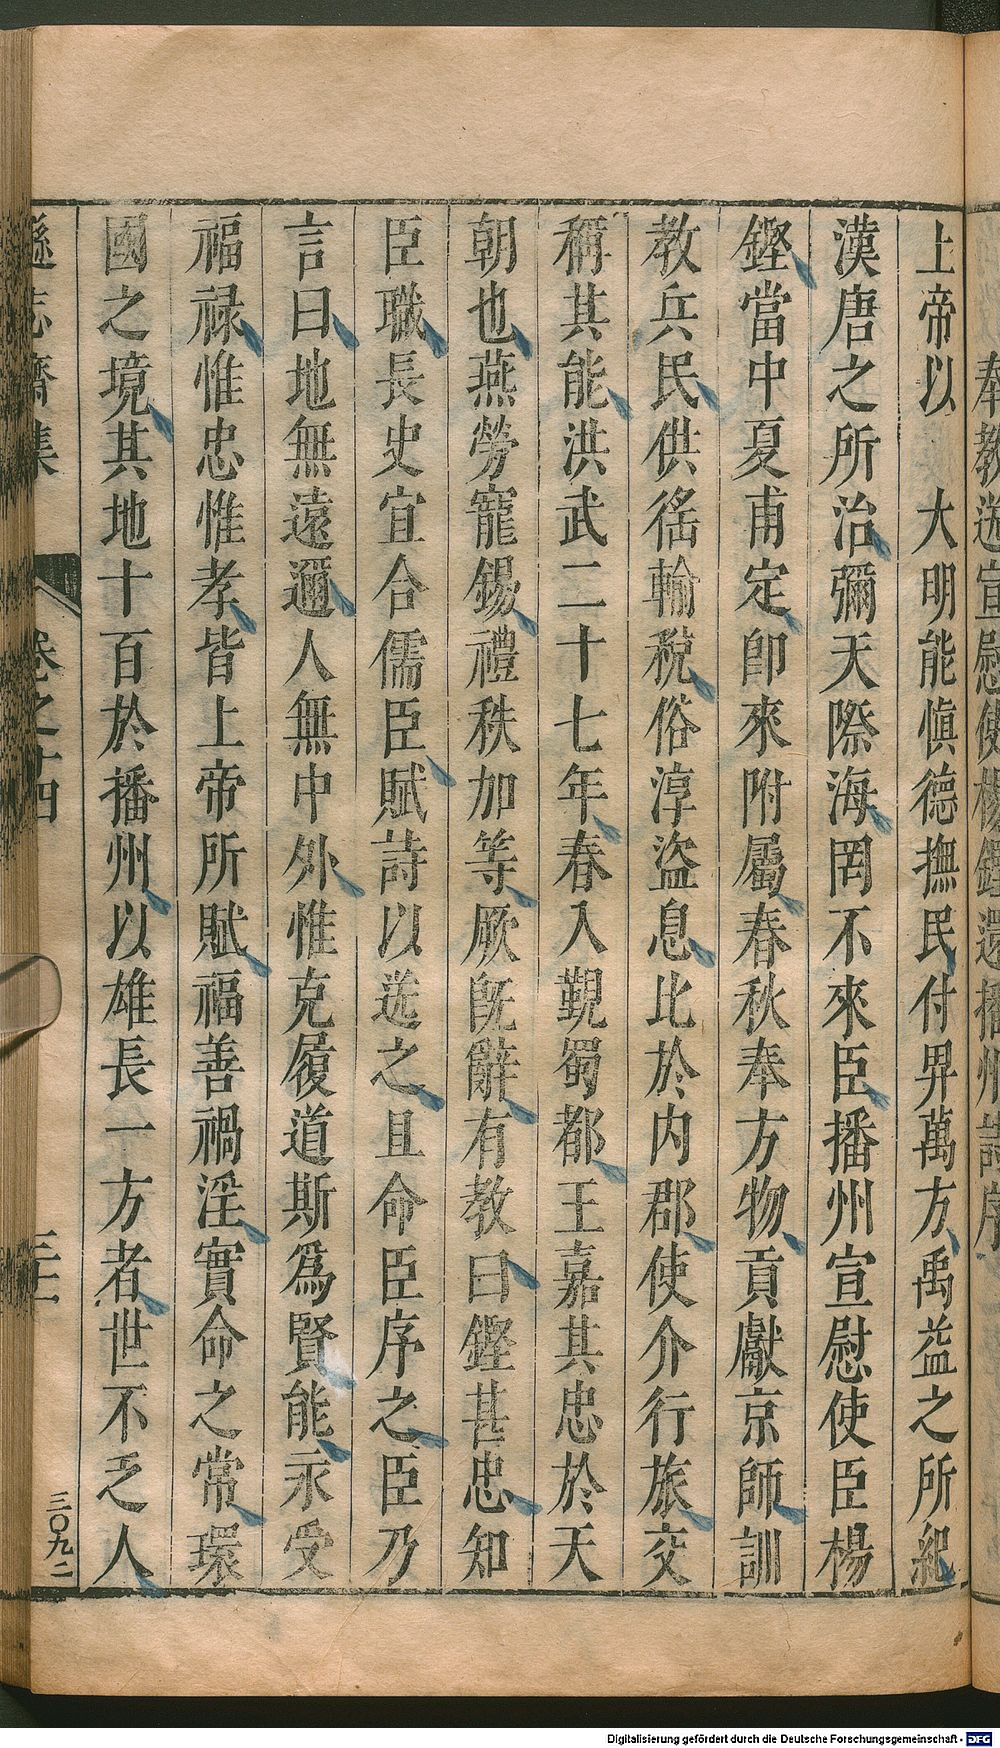 奉教送宣慰使楊鏗還播州詩序
上帝以　大明能愼德撫民付畀萬方禹益之所紀
漢唐之所治彌天際海罔不來臣播州宣慰使臣楊
鏗當中夏甫定卽來附屬春秋奉方物貢獻京師訓
教兵民供徭輸稅俗淳盜息比於内郡使介行旅交
稱其能洪武二十七年春入覲蜀都王嘉其忠於天
朝也燕勞寵錫禮秩加等厥旣辭有教曰鏗甚忠知
臣職長史宜合儒臣賦詩以送之且命臣序之臣乃
言曰地無遠邇人無中外惟克履道斯爲賢能永受
福祿惟忠惟孝皆上帝所賦福善禍淫實命之常環
國之境其地十百於播州以雄長一方者世不乏人
遜志齋集　卷之十四　三十
三〇九二
Digitalisierung gefördert durch die Deutsche Forschungsgemeinschaft - DFG